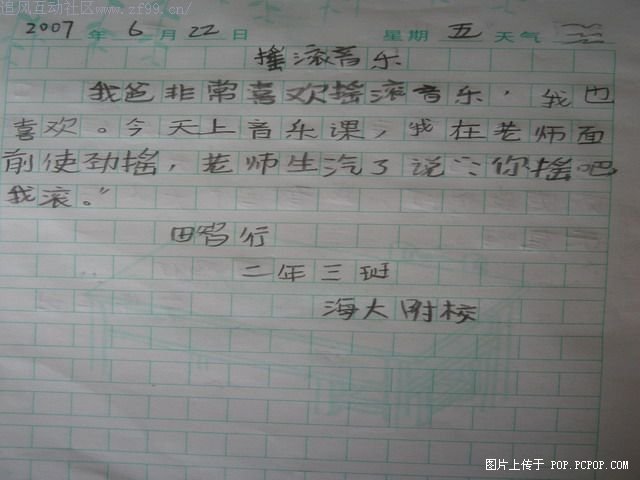 追风互动社区
www.zf99.cn/
2007年6月22日 星期五天气
摇滚音乐
我爸非常喜欢摇滚音乐，我也
喜欢。今天上音乐课，我在老师面
前使劲摇，老师生汽了说：“你摇吧
我滚。”
田智行
二年三班
海大附校
图片上传于 POP.PCPOP.COM